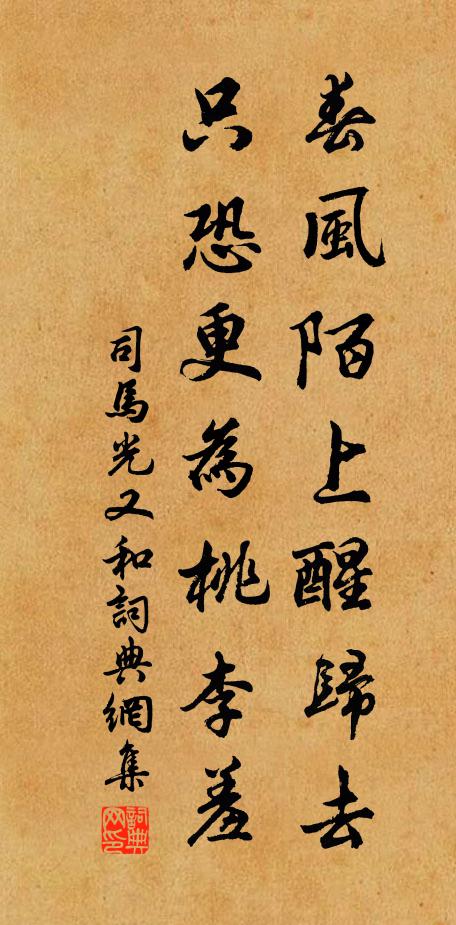 春風陌上醒歸去
只恐更為桃李羞
司馬光又和詞典網集
詞典网印